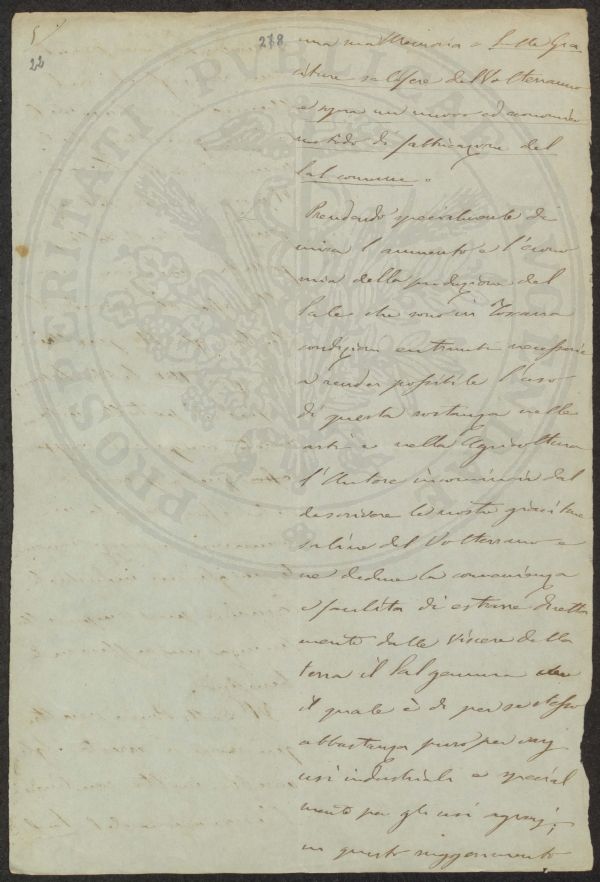 5
22
278
una sua Memoria = Sulle Gia
citure salifere del Volterrano
e sopra un nuovo ed economico
metodo di fabbricazione del
sal comune =
Prendendo specialmente di
mira l'aumento e l'econo
mia della produzione del
Sale, che sono in Toscana
condizioni entrambe necessarie
a render possibile l'uso
di questa sostanza nelle
arti e nella Agricoltura
l'Autore incomincia dal
descrivere le nostre giaciture
saline del Volterrano e
ne deduce la convenienza
e facilità di estrarre diretta
mente dalle viscere della
terra il Sal gemma
il quale è di per se stesso
abbastanza puro per
usi industriali e special
mente per gli usi agrarj;
in questo suggerimento
PROSPERITATI PVBLICAE AVGENDAE